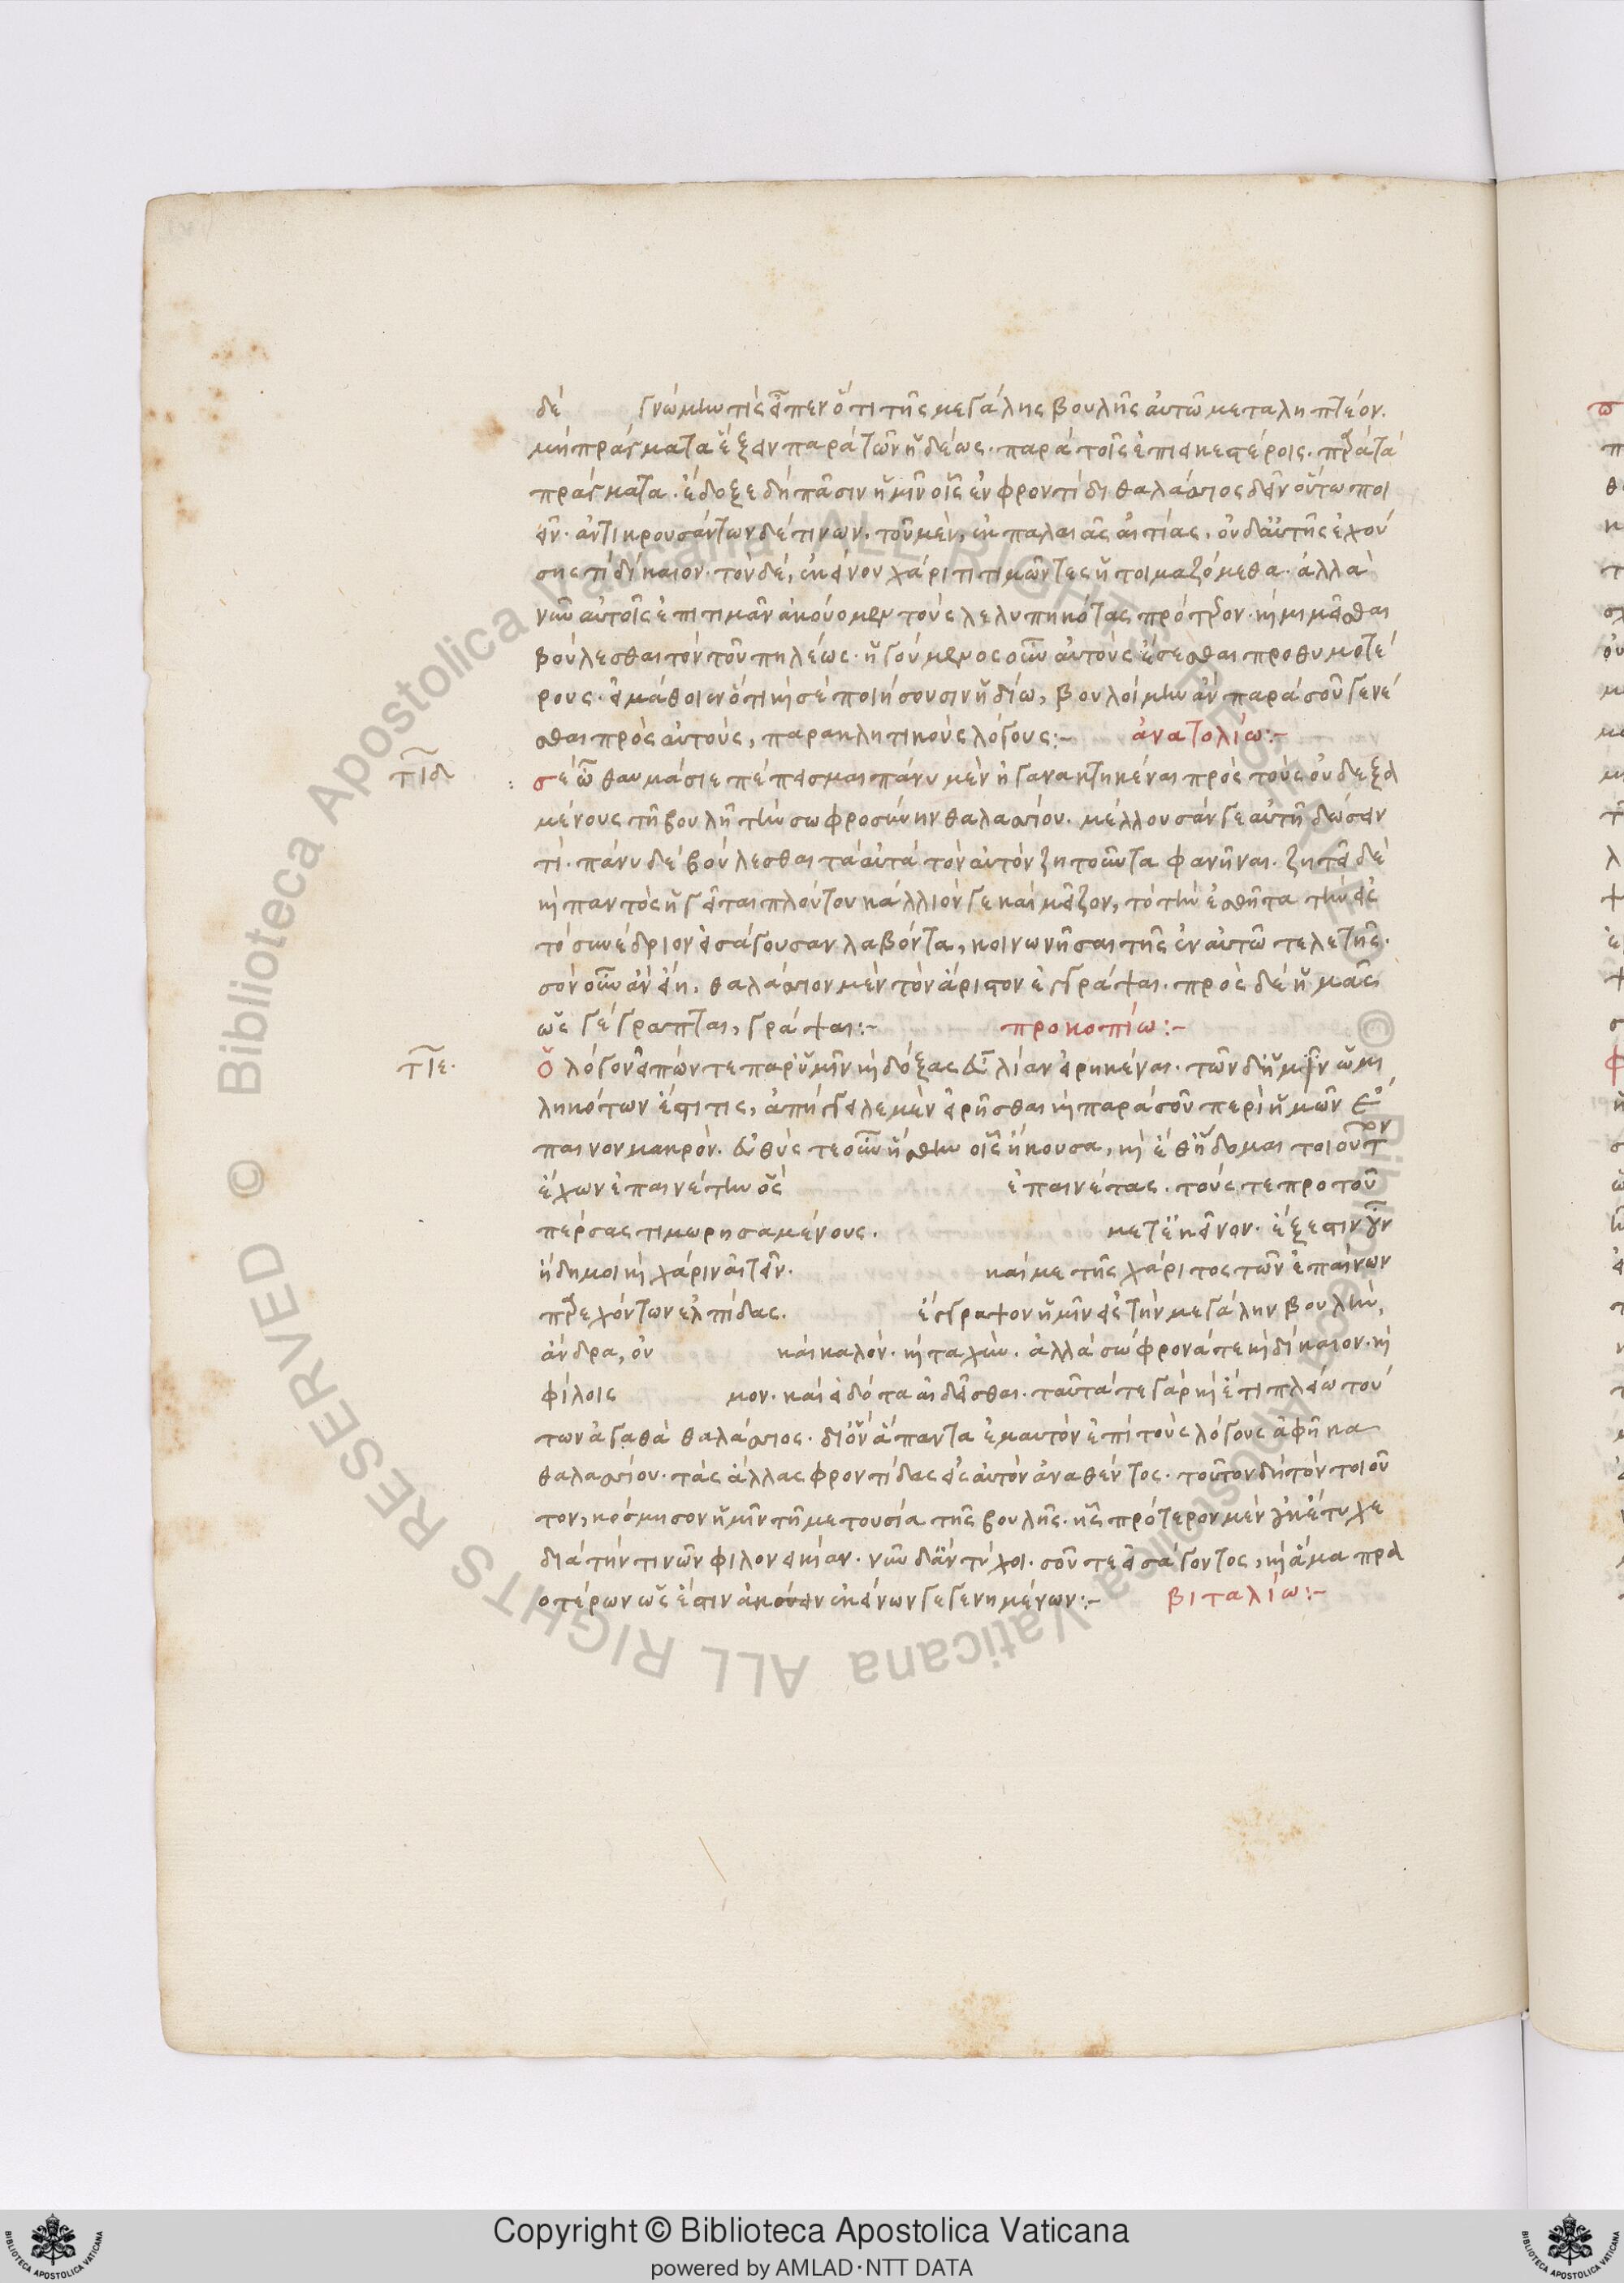 δὲ γνώμην τίς εἶπεν ὅτι τῆς μεγάλης βουλῆς αὐτῶ μεταληπτέον.
μὴ πράγματα ἕξειν παρὰ τῶν ἡδέως. παρὰ τοῖς ἐπιεικεστέροις. πρᾶτα
πράγματα. ἔδοξε δὴ πᾶσιν ἡμῖν οἷς ἐν φροντίδι θαλάσσιος δεῖν οὕτω ποι
εῖν. ἀντικρουσάντων δέ τινων. τοῦ μὲν, ἐκ παλαιᾶς αἰτίας, οὐδ' αὐτῆς ἐχού
σης τί δίκαιον. τὸν δὲ, ἐκείνου χάριτι τιμῶντες ἡτοιμαζόμεθα. ἀλλὰ
νῦν αὐτοῖς ἐπιτιμᾶν ἀκούομεν τοὺς λελυπηκότας πρότερον. καὶ μιμεῖσθαι
βούλεσθαι τὸν τοῦ πηλέως. ἡγούμενος οὖν αὐτοὺς ἔσεσθαι προθυμοτέ
ρους. εἰ μάθοιεν ὅτι καὶ σὲ ποιήσουσιν ἡδίω, βουλοίμην ἂν παρὰ σοῦ γενέ
σθαι πρὸς αὐτοὺς, παρακλητικοὺς λόγους:- ἀνατολίω:-
τιδ σὲ ὦ θαυμάσιε πέπεισμαι πάνυ μὲν ἠγανακτηκέναι πρὸς τοὺς οὐ δεξα
μένους τῆ βουλῆ τὴν σωφροσύνην θαλασσίου. μέλλουσάν γε αὐτῆ δώσειν
τί. πάνυ δὲ βούλεσθαι τὰ αὐτὰ τὸν αὐτὸν ζητοῦντα φανῆναι. ζητεῖ δὲ
καὶ παντὸς ἡγεῖται πλούτου κάλλιόν γε καὶ μεῖζον, τὸ τὴν ἐσθῆτα τὴν εἰς
τὸ συνέδριον εἰσάγουσαν λαβόντα, κοινωνῆσαι τῆς ἐν αὐτῶ τελετῆς.
σὸν οὖν ἂν εἴη, θαλάσσιον μὲν τὸν ἄριστον ἐγγράψαι. πρὸς δὲ ἡμᾶς
ὡς γέγραπται, γράψαι:- προκοπίω:-
τιε. Ὁ λόγον εἰπών τε παρ' ὑμῖν καὶ δόξας εὖ λίαν εἰρηκέναι. τῶν δ' ἡμῖν ὡμι
ληκότων ἐστί τις, ἀπήγγειλε μὲν εἰρῆσθαι καὶ παρὰ σοῦ περὶ ἡμῶν ἔ
παινον μακρόν. εὐθύς τε οὖν ἥσθην οἷς ἤκουσα, καὶ ἔθ' ἥδομαι τοιοῦτον
ἔχων ἐπαινέτην ὃς ἐπαινέτας. τούς τε πρὸ τοῦ
πέρσας τιμωρησαμένους. μετ' ἐκεῖνον. ἔξεστιν οὖν
ἤδη μοι καὶ χάριν αἰτεῖν. καί με τῆς χάριτος τῶν ἐπαίνων
παρεχόντων ἐλπίδας. ἔγγραψον ἡμῖν εἰς τὴν μεγάλην βουλὴν,
ἄνδρα, ὃν καὶ καλόν. καὶ ταχύν. ἀλλὰ σώφρονά τε καὶ δίκαιον. καὶ
φίλοις μον. καὶ εἰδότα αἰδεῖσθαι. ταῦτά τε γὰρ καὶ ἔτι πλείω τού
των ἀγαθὰ θαλάσσιος. δι' ὃν ἅπαντα ἐμαυτὸν ἐπὶ τοὺς λόγους ἀφῆκα
θαλασσίου. τὰς ἄλλας φροντίδας εἰς αὐτὸν ἀναθέντος. τοῦτον δὴ τὸν τοιοῦ
τον, κόσμησον ἡμῖν τῆ μετουσία τῆς βουλῆς. ἧς πρότερον μὲν οὐκ ἔτυχε
διὰ τήν τινῶν φιλονεικίαν. νῦν δ' ἂν τύχοι. σοῦ τε εἰσάγοντος, καὶ ἅμα πρα
οτέρων ὡς ἔστιν ἀκούειν ἐκείνων γεγενημένων:- βιταλίω:-